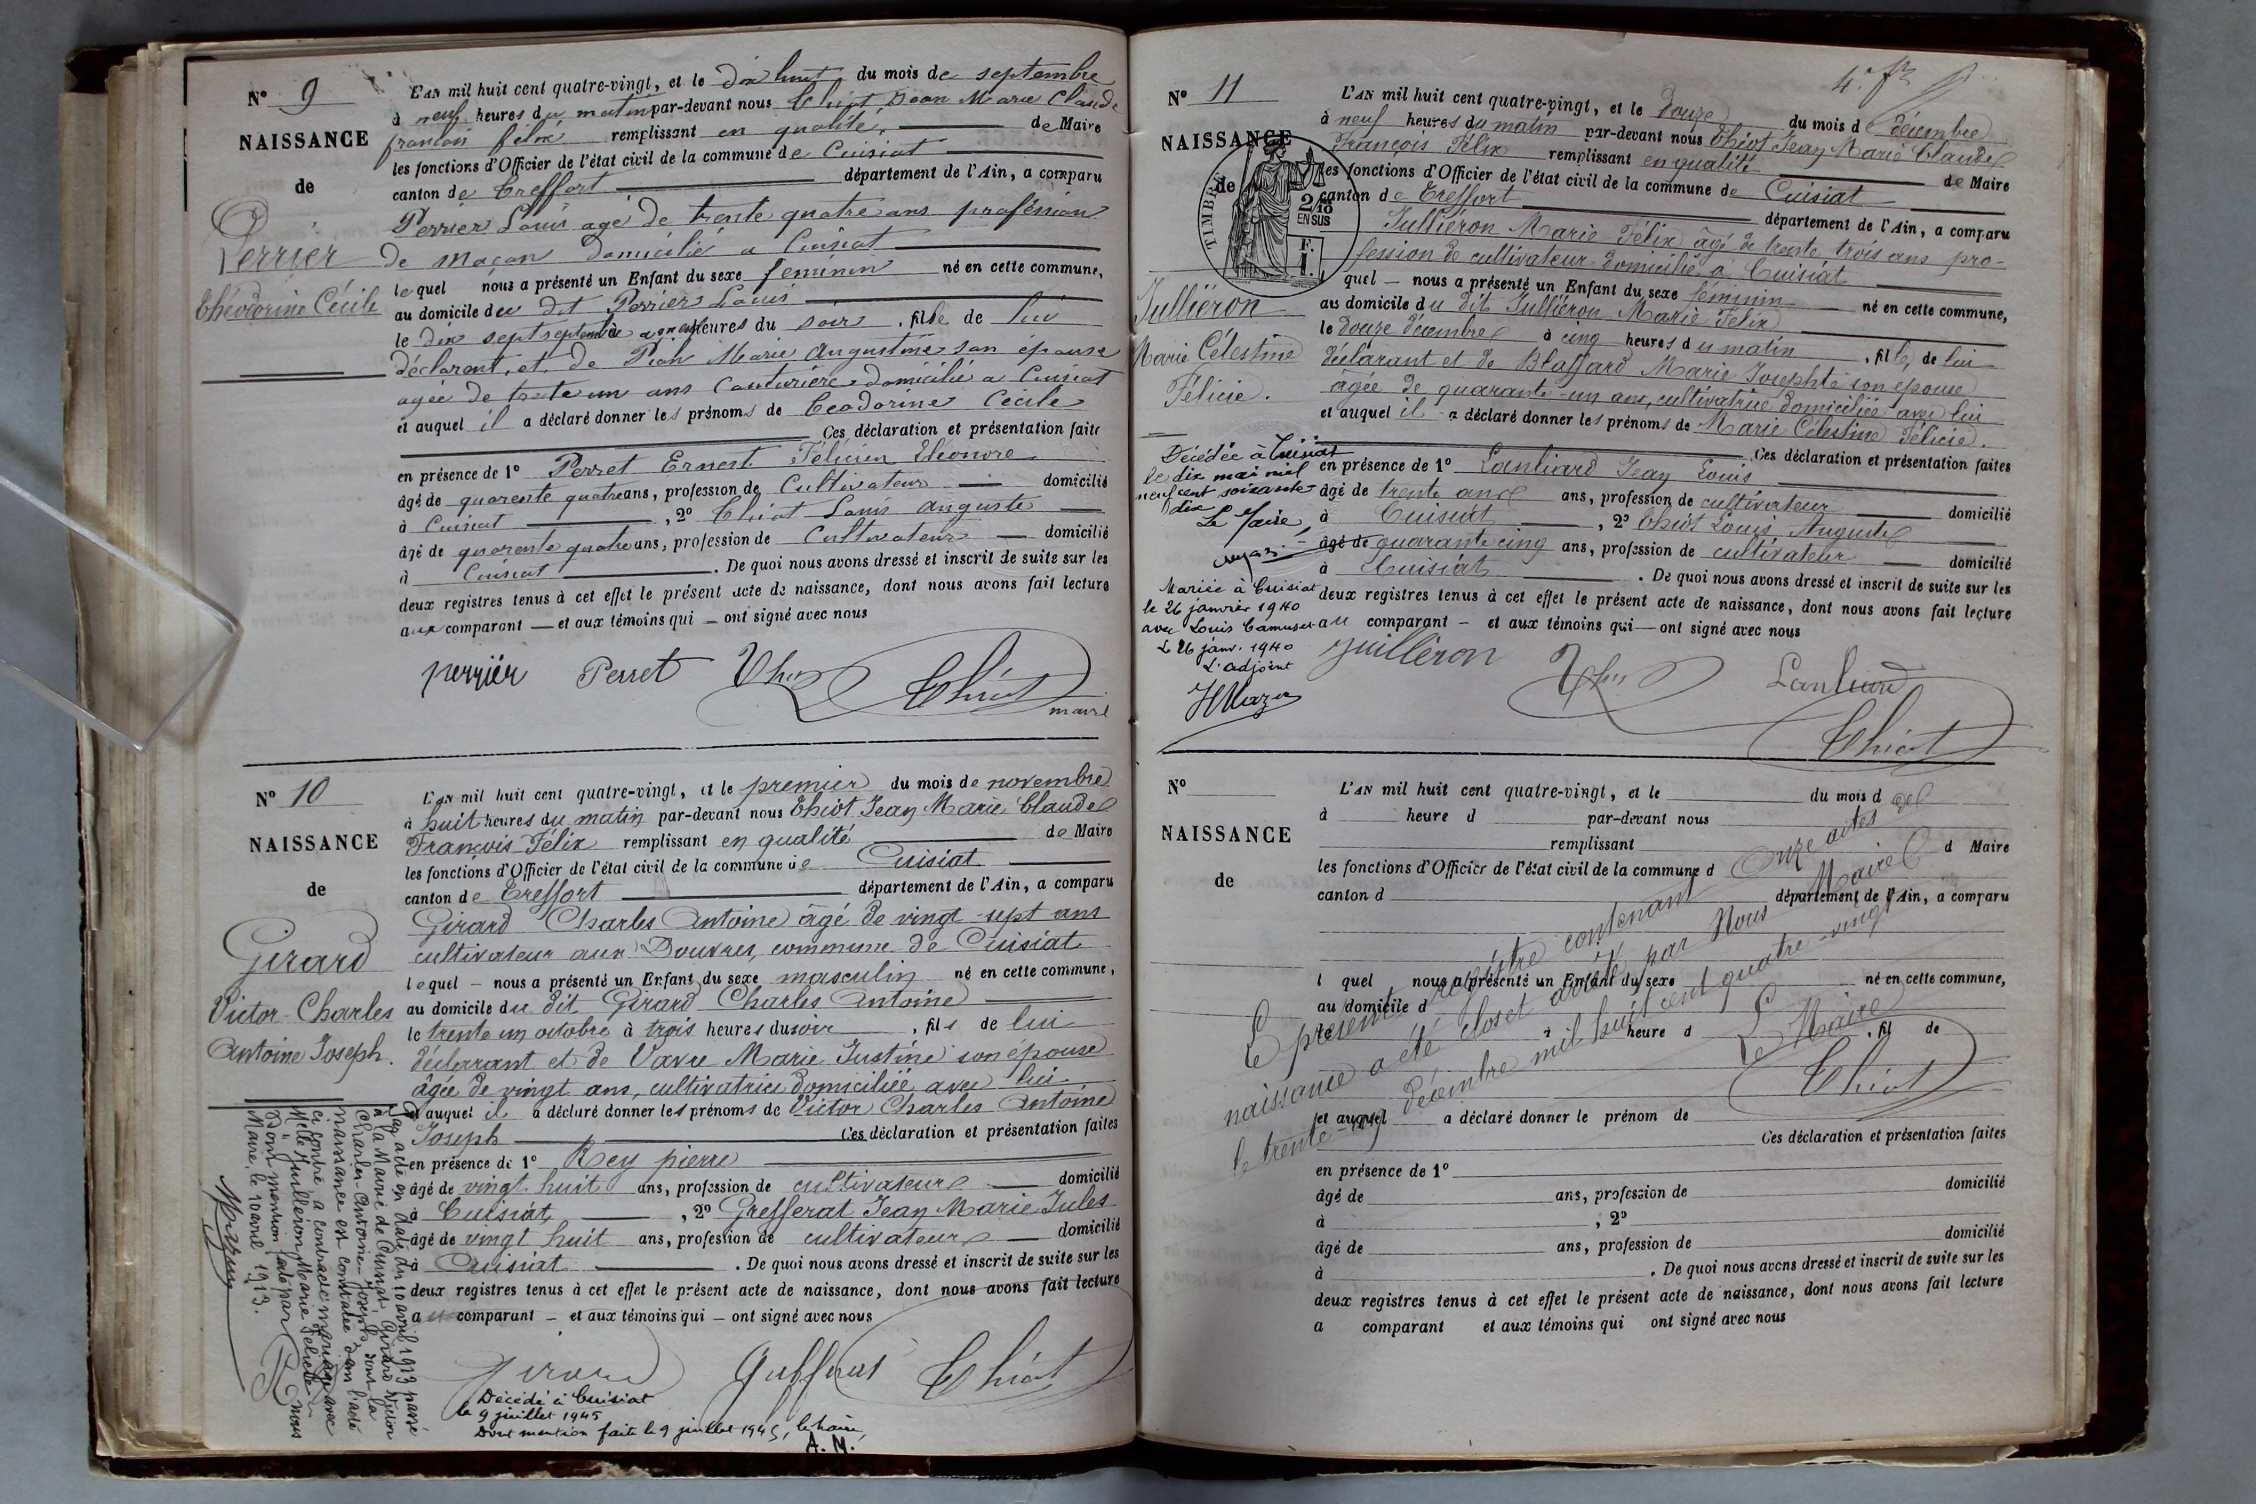 N° 9
NAISSANCE
de
Perrier
Théodorine Cécile
L'AN mil huit cent quatre-vingt, et le dix huit du mois de septembre
à neuf heures du matin par-devant nous Thiot Jean Marie Claude
françois félix remplissant en qualité de Maire
les fonctions d'Officier de l'état civil de la commune de Cuisiat
canton de Treffort département de l'Ain, a comparu
Perrier Louis agé de trente quatre ans proféssion
de maçon domicilié a Cuisiat
lequel nous a présenté un Enfant du sexe feminin né en cette commune,
au domicile du dit Perrier Louis
le dix sept septembre a heures du soir, fille de lui
déclarent, et de Marie Augustine son épouse
agée de trente un ans Couturière domicilié a Cuisiat
et auquel il a déclaré donner les prénoms de Ceodorine Cecile
Ces déclaration et présentation faite
en présence de 1° Perret Ernest Félicien Eléonore
âgé de quarente quatre ans, profession de Cultivateur domicilié
à Cuisiat, 2° Thiot Louis Auguste
âgé de quarente quatre ans, profession de Cultivateur domicilié
à Cuisiat. De quoi nous avons dressé et inscrit de suite sur les
deux registres tenus à cet effet le présent acte de naissance, dont nous avons fait lecture
aux comparant — et aux témoins qui — ont signé avec nous
perrier Perret Thiot Thiot
maire
N° 10
NAISSANCE
de
Girard
Victor-Charles
Antoine Joseph.
L'AN mil huit cent quatre-vingt, et le premier du mois de novembre
à huit heures du matin par-devant nous Thiot Jean Marie Claude
François Félix remplissant en qualité de Maire
les fonctions d'Officier de l'état civil de la commune de Cuisiat
canton de Treffort département de l'Ain, a comparu
Girard Charles Antoine âgé de vingt-sept ans
cultivateur aux Douvres, commune de Cuisiat
lequel — nous a présenté un Enfant du sexe masculin né en cette commune,
au domicile du dit Girard Charles Antoine
le trente un octobre à trois heures du soir, fils de lui
déclarant et de Vavre Marie Justine son épouse
âgée de vingt ans, cultivatrice domiciliée avec lui
et auquel il a déclaré donner les prénoms de Victor Charles Antoine
Joseph Ces déclaration et présentation faites
en présence de 1° Rey pierre
âgé de vingt huit ans, profession de cultivateur domicilié
à Cuisiat, 2° Grefferat Jean Marie Jules
âgé de vingt huit ans, profession de cultivateur domicilié
à Cuisiat. De quoi nous avons dressé et inscrit de suite sur les
deux registres tenus à cet effet le présent acte de naissance, dont nous avons fait lecture
au comparant — et aux témoins qui — ont signé avec nous
Girard Grefferat Thiot
Par acte en date du 10 avril 1913 passé
à la Mairie de Cuisiat, Girard Victor
Charles-Antoine-Joseph, dont la
naissance est constatée dans l'acte
ci-contre a contracté mariage avec
Melle Juilleron Marie Félicie
Dont mention faite par nous
Maire, le 10 avril 1913.
Décédé à Cuisiat
le 9 juillet 1945
Dont mention faite le 9 juillet 1945, le maire,
A. M.
4e f.
N° 11
NAISSANCE
de
TIMBRE
2/10
EN SUS
F.
1.
Julliéron
Marie Célestine
Félicie.
L'AN mil huit cent quatre-vingt, et le douze du mois de décembre
à neuf heures du matin par-devant nous Thiot Jean Marie Claude
François Félix remplissant en qualité de Maire
les fonctions d'Officier de l'état civil de la commune de Cuisiat
canton de Treffort département de l'Ain, a comparu
Julliéron Marie Félix âgé de trente trois ans pro-
fession de cultivateur domicilié à Cuisiat
quel — nous a présenté un Enfant du sexe féminin né en cette commune,
au domicile du dit Julliéron Marie Félix
le douze décembre à cinq heures du matin, fille de lui
déclarant et de Blaffard Marie Josephte son épouse
âgée de quarante-un ans, cultivatrice domiciliée avec lui
et auquel il a déclaré donner les prénoms de Marie Célestine Félicie.
Ces déclaration et présentation faites
en présence de 1° Lanliard Jean Louis
âgé de trente ans, profession de cultivateur domicilié
à Cuisiat, 2° Thiot Louis Auguste
âgé de quarante cinq ans, profession de cultivateur domicilié
à Cuisiat. De quoi nous avons dressé et inscrit de suite sur les
deux registres tenus à cet effet le présent acte de naissance, dont nous avons fait lecture
au comparant — et aux témoins qui — ont signé avec nous
Juilleron Thiot Lanliard
Thiot
Décédée à Cuisiat
le dix mai mil
neuf cent soixante-
dix
Le Maire,
Mariée à Cuisiat
le 26 janvier 1940
avec Louis Camuset
Le 26 janv. 1940
L'adjoint
N°
NAISSANCE
de
L'AN mil huit cent quatre-vingt, et le du mois d
à heure d par-devant nous
remplissant d Maire
les fonctions d'Officier de l'état civil de la commune d
canton d département de l'Ain, a comparu
l quel nous a présenté un Enfant du sexe né en cette commune,
au domicile d
le à heure d, fil de
et auquel a déclaré donner le prénom de
Ces déclaration et présentation faites
en présence de 1°
âgé de ans, profession de domicilié
à, 2°
âgé de ans, profession de domicilié
à. De quoi nous avons dressé et inscrit de suite sur les
deux registres tenus à cet effet le présent acte de naissance, dont nous avons fait lecture
a comparant et aux témoins qui ont signé avec nous
Le présent registre contenant Onze actes de
naissance a été clos et arrêté par Nous Maire
le trente-un décembre mil huit cent quatre-vingt
Le Maire
Thiot